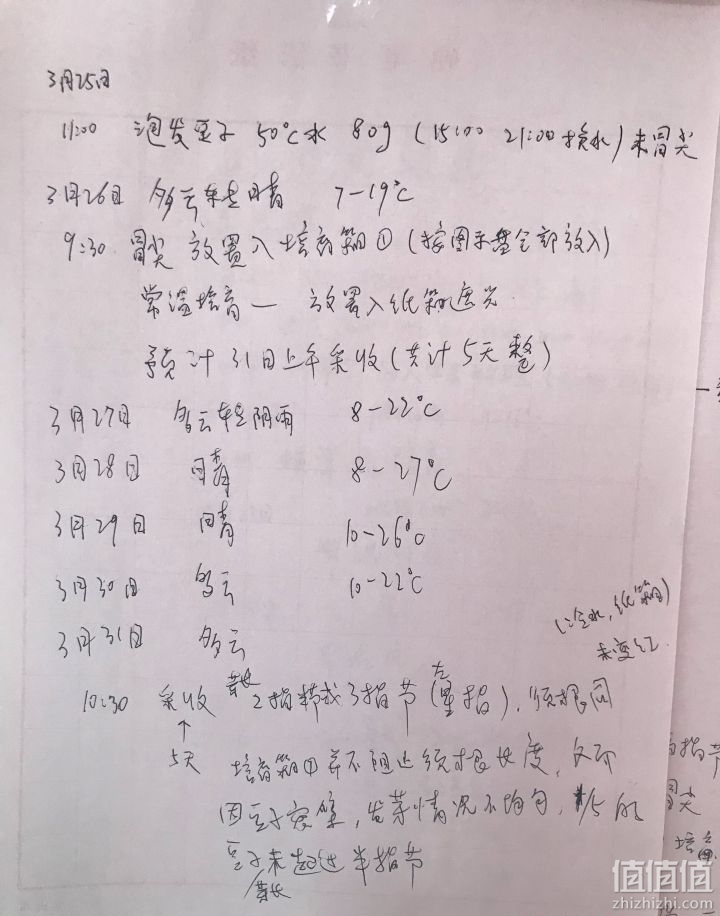 3月25日
11:00 泡发豆子 50℃水 80g (15:00 21:00换水) 未冒尖
3月26日 多云转晴 7-19℃
9:30 冒尖 放置入培育箱① (按图示盘全部放入)
常温培育— 放置入纸箱遮光.
预计31日上午采收(共计5天整)
3月27日 多云转阴雨 8-22℃
3月28日 晴 8-27℃
3月29日 晴 10-26℃
3月30日 多云 10-22℃
3月31日 多云
(冷水,纸箱)
未变红
10:30 采收 芽长 2指节或3指节(左食指). 须根同
↑
5天 培育箱①并不阻止须根长度, 反而
因豆子密集, 发芽情况不均匀, 1/5的
豆子未超过半指节
芽长
指节
冒尖
培
值值值
zhizhizhi.com